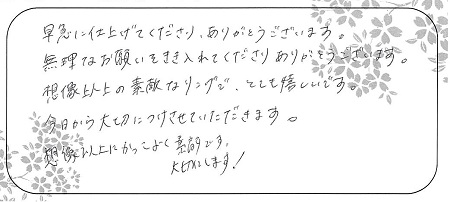 早急に仕上げてくださり、ありがとうございます。
無理なお願いもきき入れてくださりありがとうございます。
想像以上の素敵なリングで、とても嬉しいです。
今日から大切につけさせていただきます。
想像以上にかっこよく素敵です。
大切にします!